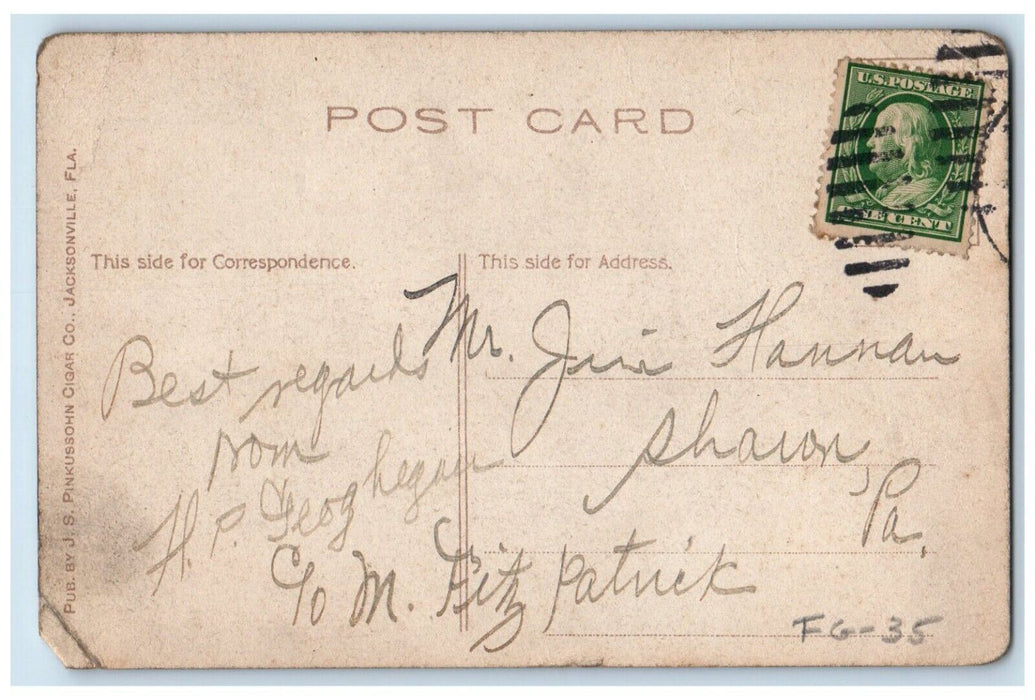 POST CARD
U.S. POSTAGE
ONE CENT
PUB. BY J. S. PINKUSSOHN CIGAR CO., JACKSONVILLE, FLA.
This side for Correspondence.
This side for Address.
Best regards
from
H. P. Geoghegan
Mr. Jim Hannan
Sharon,
Pa.
c/o M. Fitzpatrick
FG-35